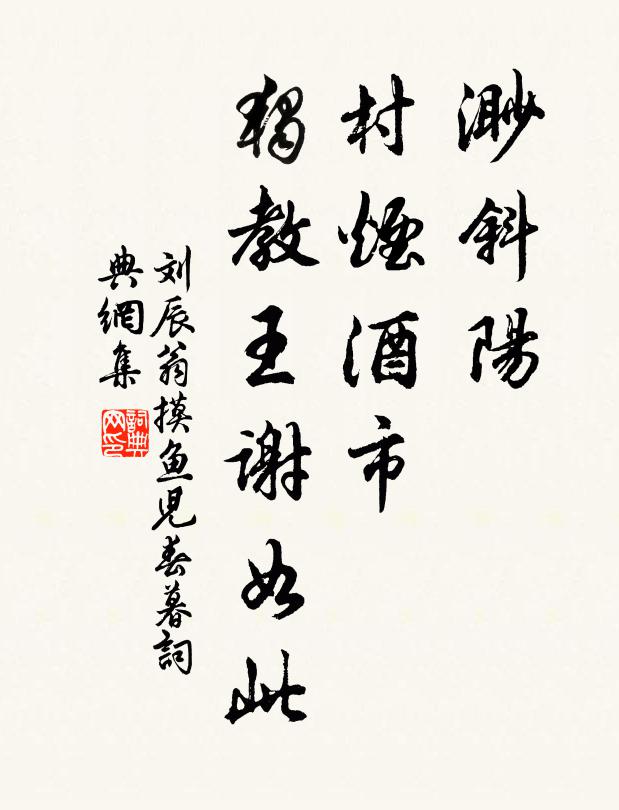 渺斜陽
村煙酒市
獨教王謝如此
刘辰翁摸鱼児春暮詞
典網集
詞典网印